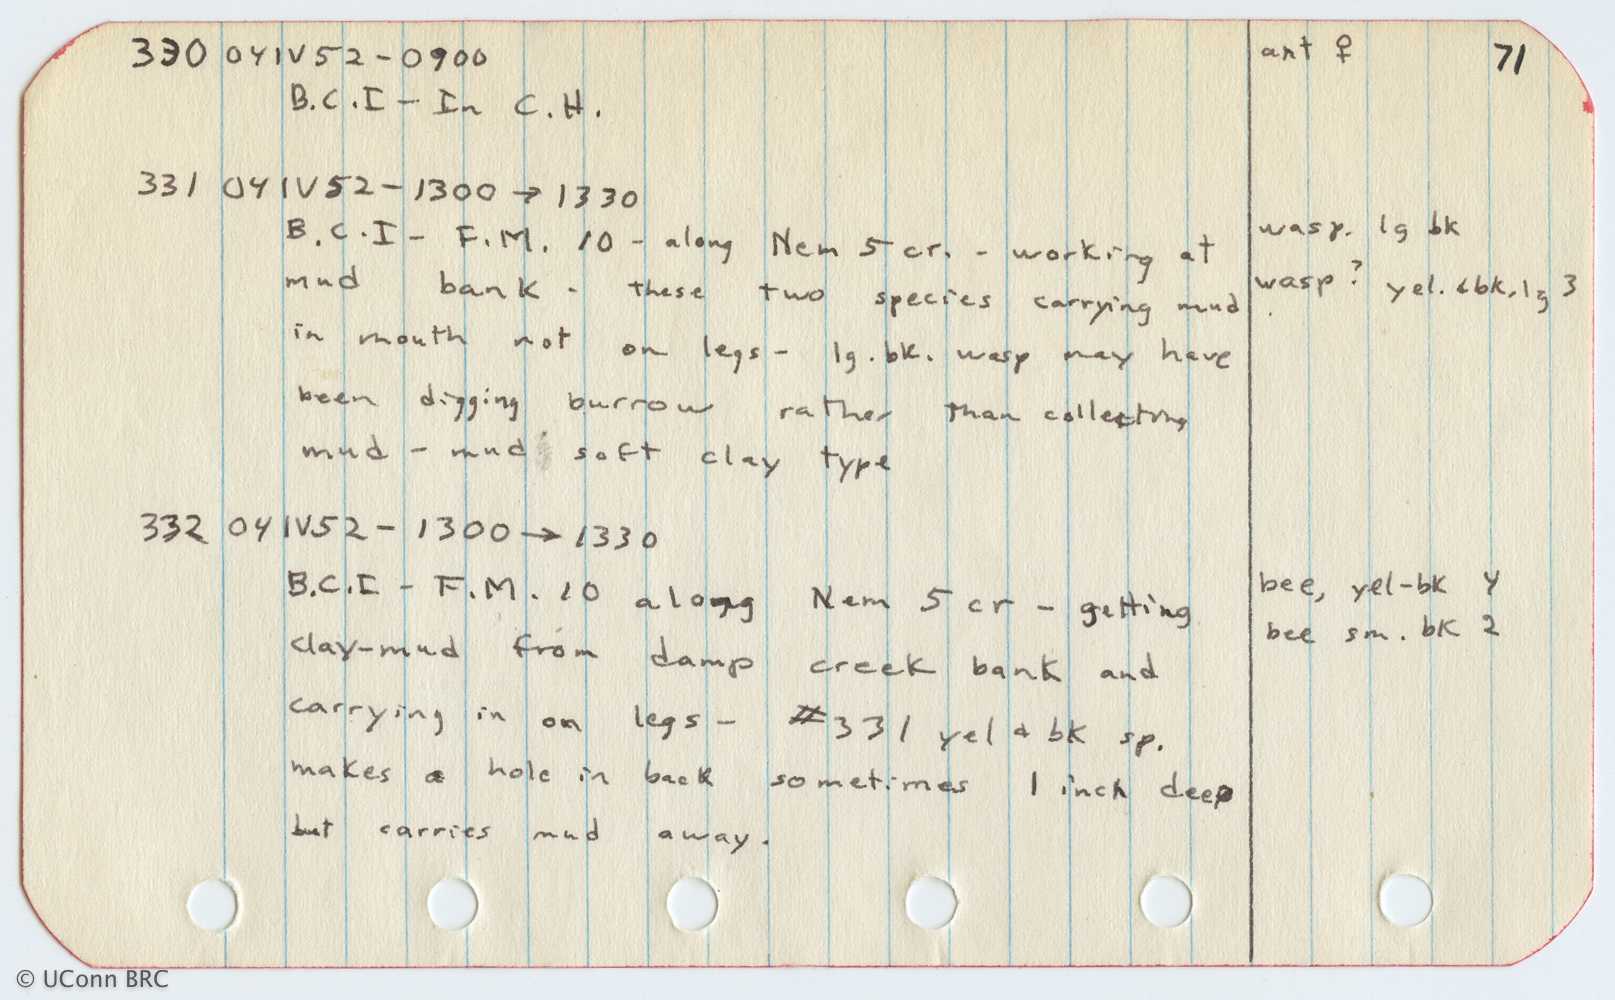 330 04IV52-0900 ant ♀ 71
B.C.I - In C.H.
331 04IV52-1300→1330
B.C.I - F.M. 10 - along Nem 5 cr. - working at wasp. lg bk
mud bank - these two species carrying mud wasp? yel. &bk, lg 3
in mouth not on legs - lg. bk. wasp may have
been digging burrow rather than collecting
mud - mud soft clay type
332 04IV52 - 1300→1330
B.C.I - F.M. 10 along Nem 5 cr - getting bee, yel-bk 4
clay-mud from damp creek bank and bee sm. bk 2
carrying in on legs - #331 yel & bk sp.
makes a hole in back sometimes 1 inch deep
but carries mud away.
© UConn BRC